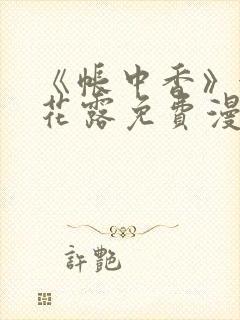 《帳中香》
花露免費漫
許艷